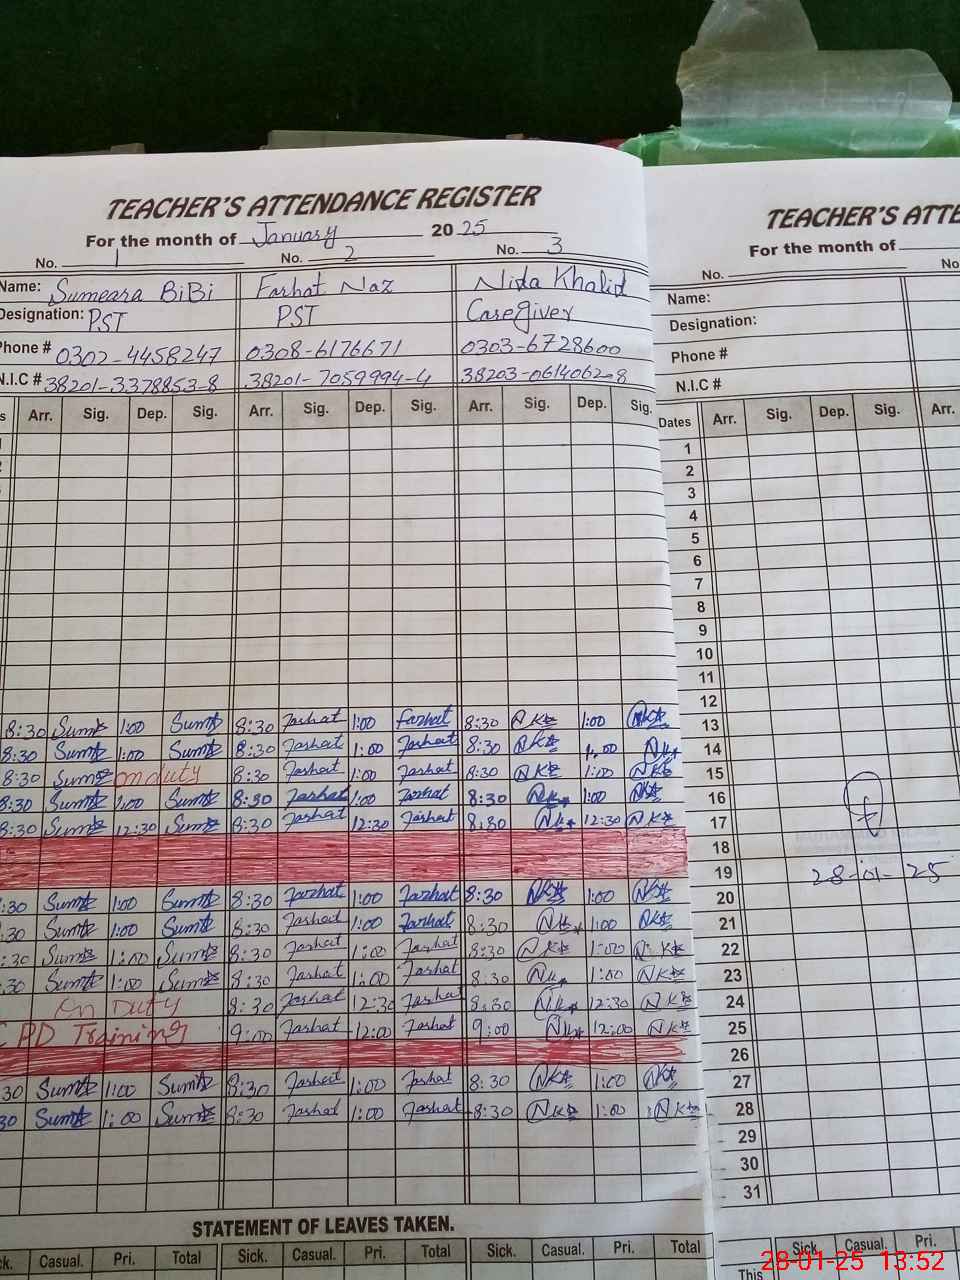 TEACHER'S ATTENDANCE REGISTER
For the month of January 2025
No. 1 No. 2 No. 3
Name: Sumeara BiBi Farhat Naz Nida Khalid
Designation: PST PST Caregiver
Phone # 0302-4458247 0308-6176671 0303-6728600
N.I.C # 38201-3378853-8 38201-7059994-4 38203-0614062-8
Arr. Sig. Dep. Sig. Arr. Sig. Dep. Sig. Arr. Sig. Dep. Sig.
8:30 Sum 1:00 Sum 8:30 Farhat 1:00 Farhat 8:30 NK 1:00 NK
8:30 Sum 1:00 Sum 8:30 Farhat 1:00 Farhat 8:30 NK 1:00 NK
8:30 Sum on duty 8:30 Farhat 1:00 Farhat 8:30 NK 1:00 NK
8:30 Sum 1:00 Sum 8:30 Farhat 1:00 Farhat 8:30 NK 1:00 NK
8:30 Sum 12:30 Sum 8:30 Farhat 12:30 Farhat 8:30 NK 12:30 NK
:30 Sum 1:00 Sum 8:30 Farhat 1:00 Farhat 8:30 NK 1:00 NK
:30 Sum 1:00 Sum 8:30 Farhat 1:00 Farhat 8:30 NK 1:00 NK
:30 Sum 1:00 Sum 8:30 Farhat 1:00 Farhat 8:30 NK 1:00 NK
:30 Sum 1:00 Sum 8:30 Farhat 1:00 Farhat 8:30 NK 1:00 NK
On Duty 8:30 Farhat 12:30 Farhat 8:30 NK 12:30 NK
CPD Training 9:00 Farhat 12:00 Farhat 9:00 NK 12:00 NK
30 Sum 1:00 Sum 8:30 Farhat 1:00 Farhat 8:30 NK 1:00 NK
30 Sum 1:00 Sum 8:30 Farhat 1:00 Farhat 8:30 NK 1:00 NK
STATEMENT OF LEAVES TAKEN.
ck. Casual. Pri. Total Sick. Casual. Pri. Total Sick. Casual. Pri. Total
TEACHER'S ATTE
For the month of
No. No
Name:
Designation:
Phone #
N.I.C #
Dates Arr. Sig. Dep. Sig. Arr.
1
2
3
4
5
6
7
8
9
10
11
12
13
14
15
16
17
18
19 28-01-25
20
21
22
23
24
25
26
27
28
29
30
31
Sick Casual. Pri.
This
28-01-25 13:52